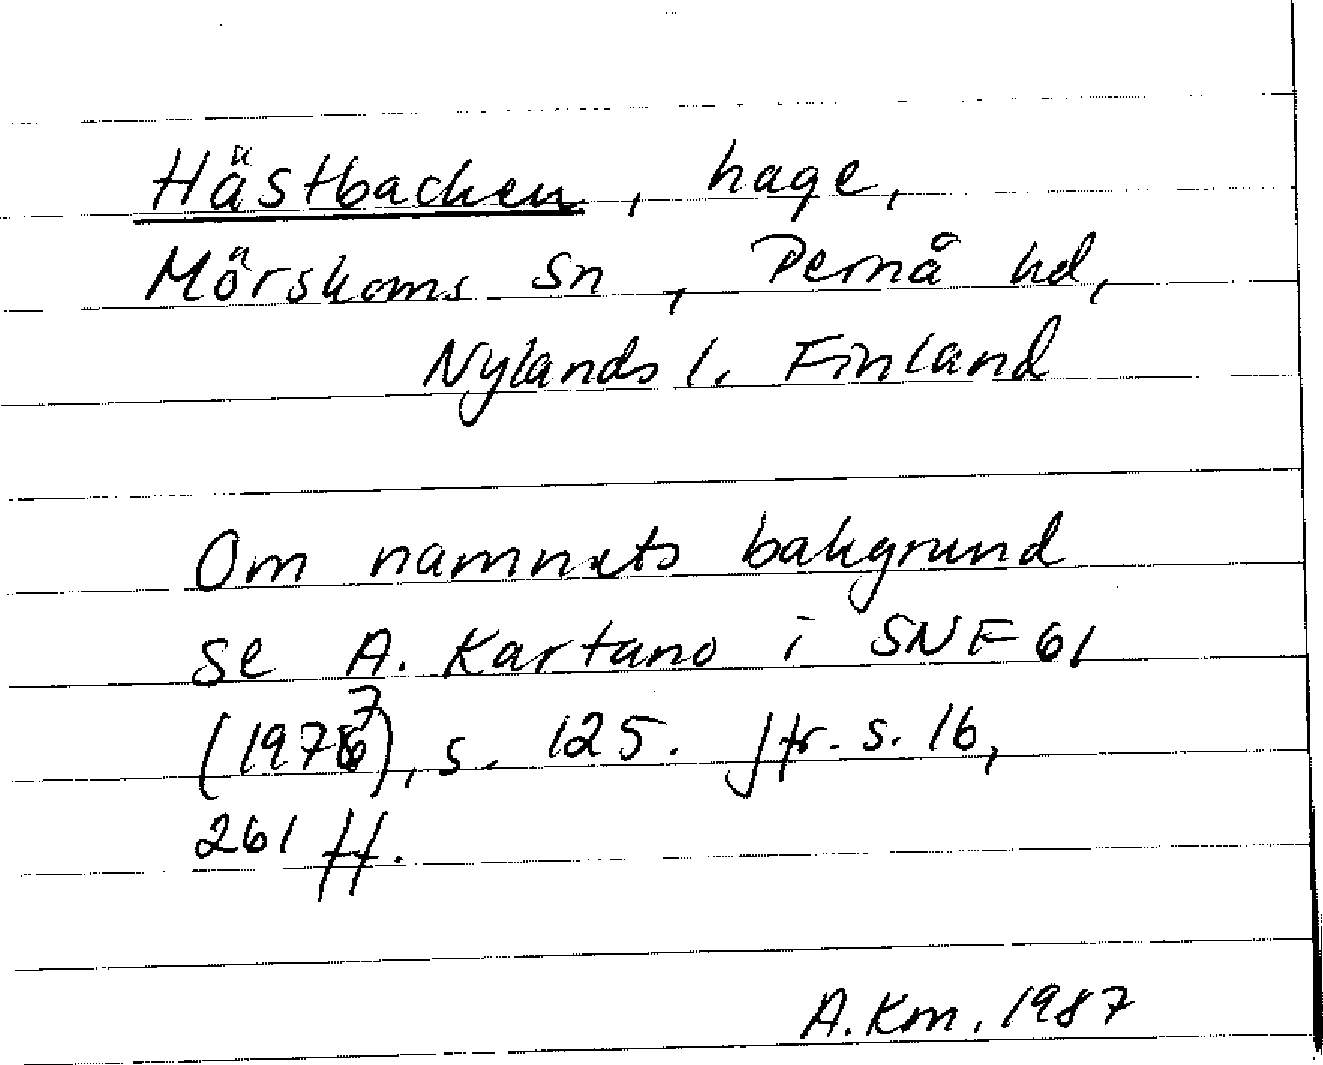 Hästbacken, hage,
Mörskoms sn, Pernå hd,
Nylands l. Finland
Om namnets bakgrund
se A. Kartano i SNF 61
(1977), s. 125. Jfr. s. 16,
261 ff.
A.Km. 1987